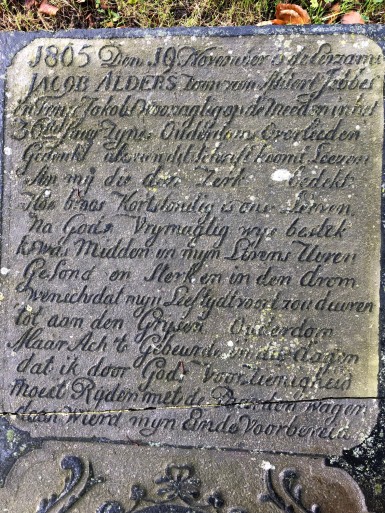 1805 Den 19 November is de Eerzame
JACOB ALDERS Zoon van Aldert Jabbes
en Jemi Jakobs Woonagtig op de Meeden in het
36ste Jaar Zynes Ouderdoms Overleeden
Gedenkt als van dit schrift koomt Leesen
Aan mij die deze Zerk bedekt
Hoe broos Kortstondig is ons Leeven
Na Gods Vrymagtig wys bestek
k was Midden in myn Levens Uuren
Gesond en Sterk en in den droom
wensch dat myn Leeftyd voort zou duuren
tot aan den Grysen Ouderdom
Maar Ach 't Gebeurde in die dagen
dat ik door Gods Voorzienigheid
moest Ryden met de Paarden wagen
Daar Wierd myn Einde Voorbereid